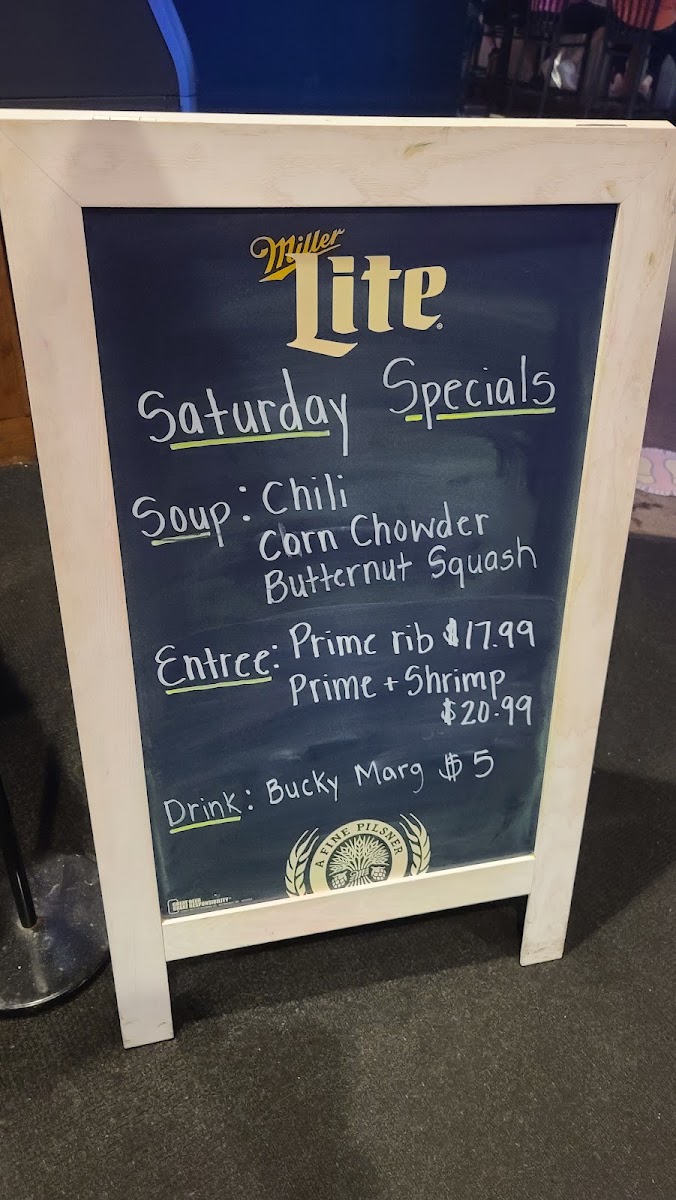 Miller
Lite
Saturday Specials
Soup: Chili
Corn Chowder
Butternut Squash
Entree: Prime rib $17.99
Prime + Shrimp
$20.99
Drink: Bucky Marg $5
A FINE PILSNER
GREAT BEER
GREAT RESPONSIBILITY